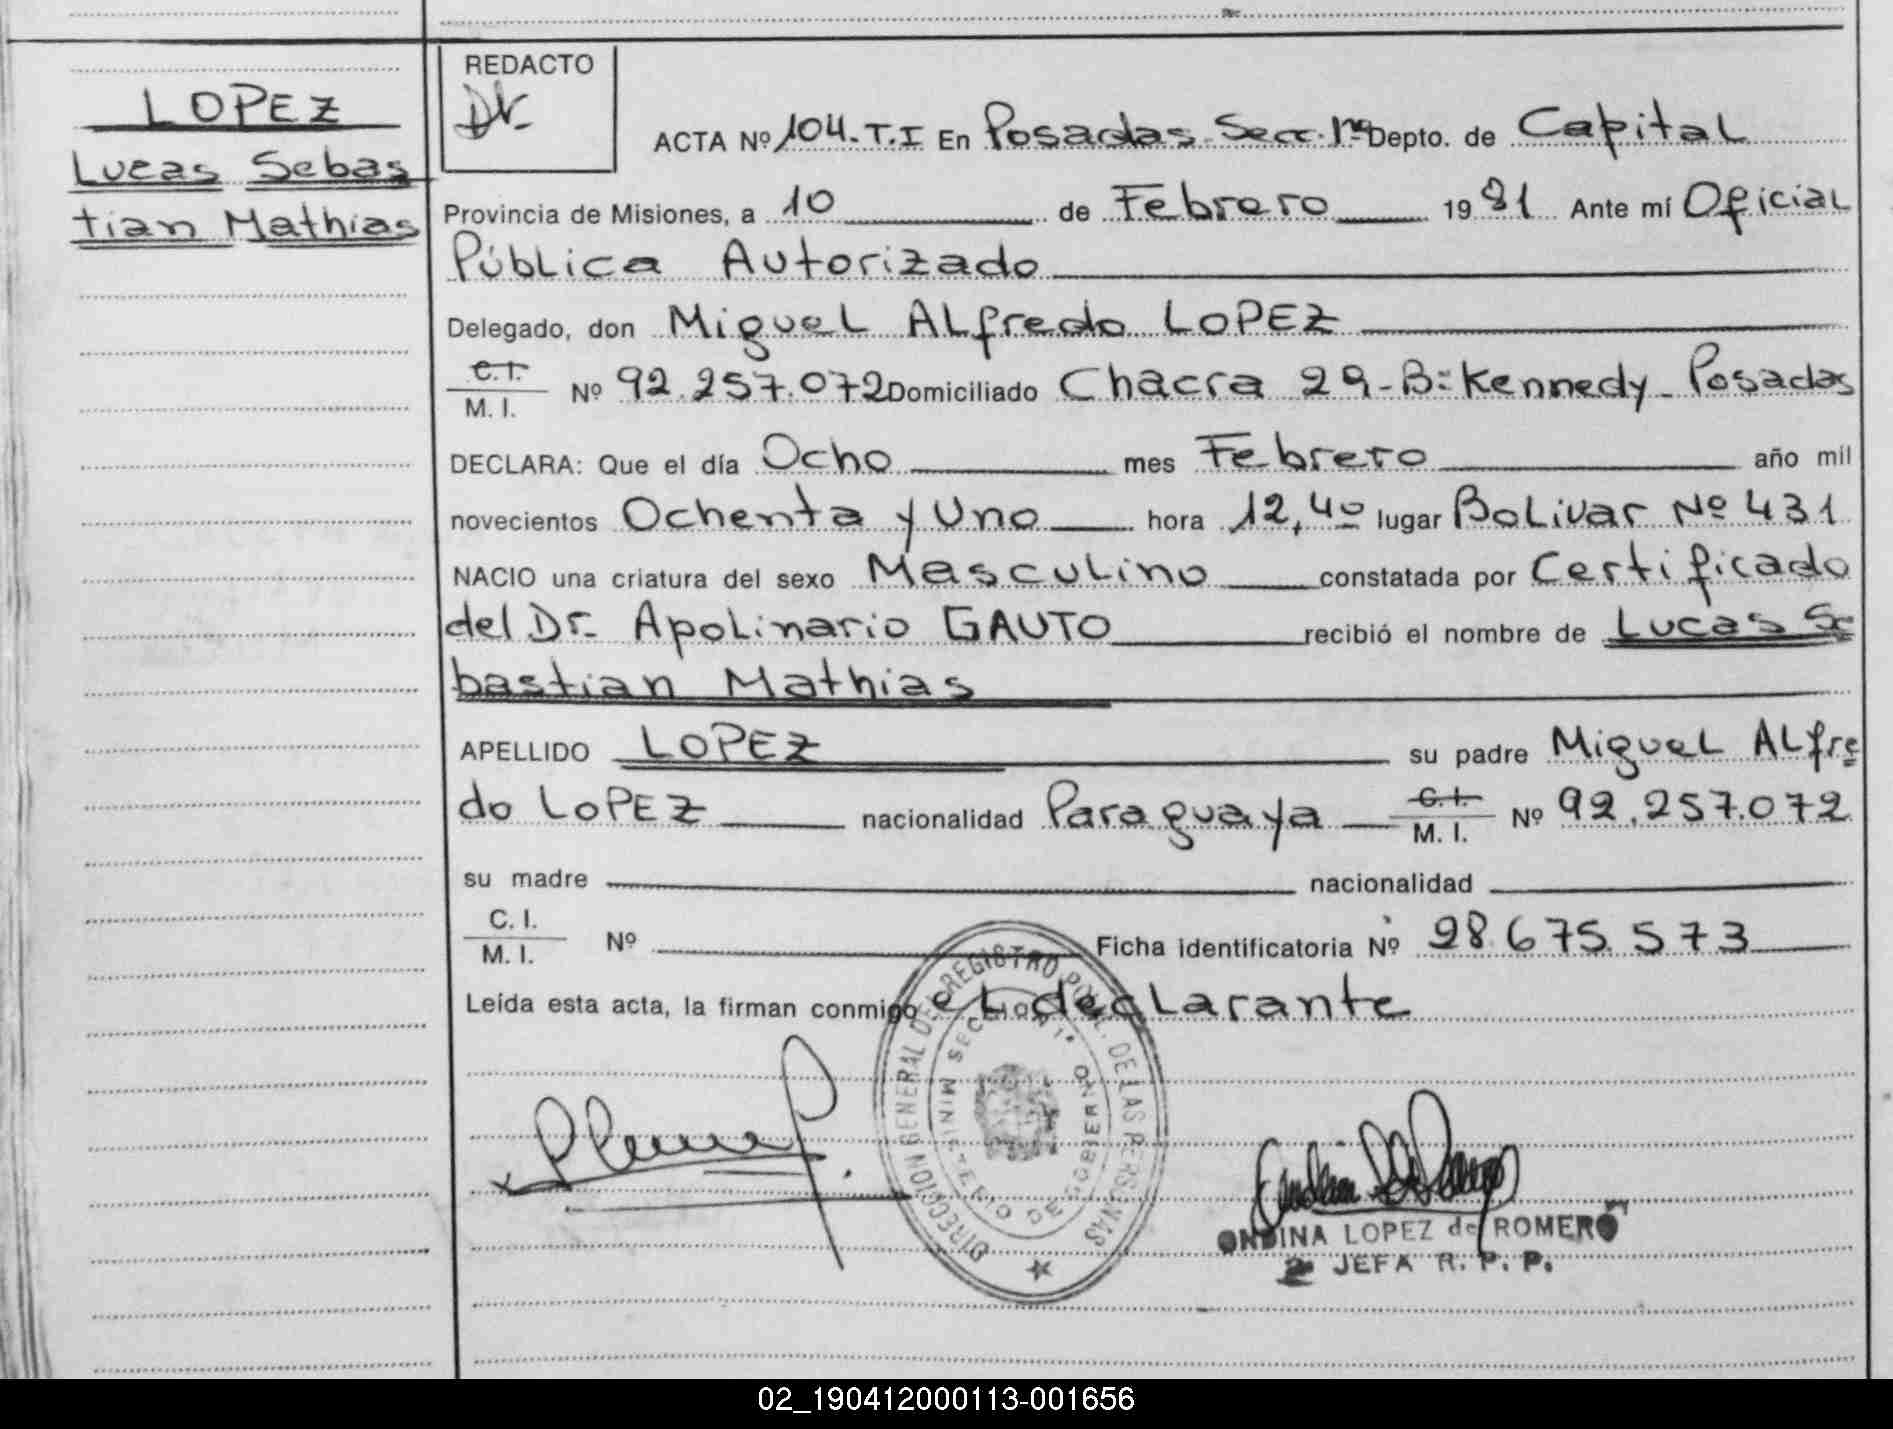 LOPEZ
Lucas Sebas
tian Mathias
REDACTO
ACTA Nº 104-T.I En Posadas Secc. 1ª Depto. de Capital
Provincia de Misiones, a 10 de Febrero 1981 Ante mí Oficial
Pública Autorizado
Delegado, don Miguel Alfredo LOPEZ
C.I.
M. I. Nº 92.257.072 Domiciliado Chacra 29-Bº Kennedy - Posadas
DECLARA: Que el día Ocho mes Febrero año mil
novecientos Ochenta y Uno hora 12,40 lugar Bolivar Nº 431
NACIO una criatura del sexo Masculino constatada por Certificado
del Dr. Apolinario GAUTO recibió el nombre de Lucas Se
bastian Mathias
APELLIDO LOPEZ su padre Miguel Alfre
do LOPEZ nacionalidad Paraguaya C.I. M. I. Nº 92.257.072
su madre nacionalidad
C. I.
M. I. Nº Ficha identificatoria Nº 28.675.573
Leída esta acta, la firman conmigo el declarante
DIRECCION GENERAL DEL REGISTRO PCIAL. DE LAS PERSONAS
SECCION 1ª
MINISTERIO DE GOBIERNO
ONDINA LOPEZ de ROMERO
JEFA R. P. P.
02_190412000113-001656